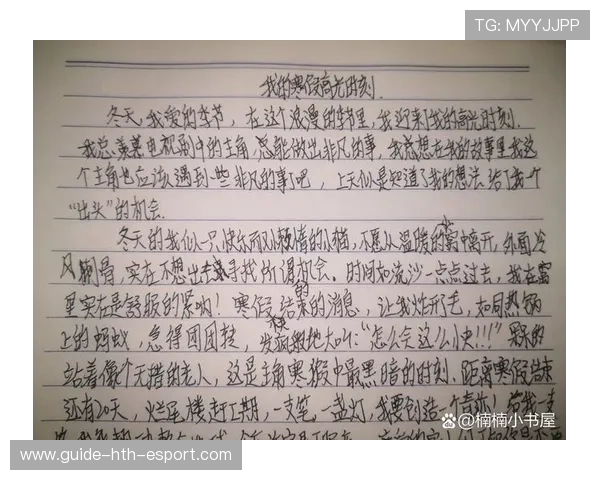 TG: MYYJJPP
我的寒假高光时刻
冬天,我爱的季节,在这个浪漫的季节里,我迎来了我的高光时刻.
我总羡慕电视剧中的主角,总能做出非凡的事,我总想在我的故事里我这
个主角也应该遇到些非凡的事了吧,上天似是知道了我的想法,给了我一个
“出头”的机会.
冬天的我似一只快乐而又懒惰的小猫,不愿从温暖的窝中离开,外面冷
风刺骨,实在不想出去寻找所谓机会.时间如流沙一点点过去,我在窝
里实在是舒服的紧啊!寒假结束的消息,让我炸开了毛,如同热锅
上的蚂蚁,急得团团转,发疯般地大叫:“怎么会这么快!!!”呆呆的
站着像个无措的老人,这是主角寒假中最黑暗的时刻.距离寒假结束
还有20天,烂尾楼赶工期,一支笔一盏灯,我要创造一个奇迹!给我一支
百度@楠楠小书屋
www.guide-hth-esport.com